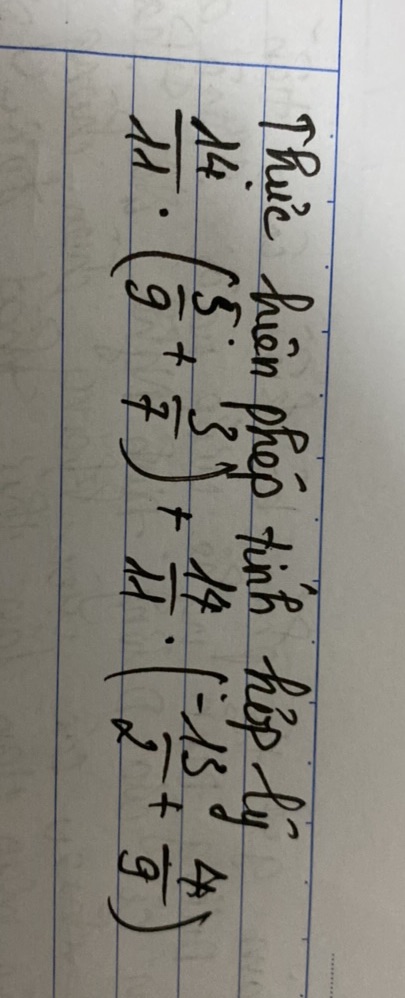 Thức hiện phép tính hợp lý
14/11 . (5/9 + 3/7) + 14/11 . (-13/2 + 4/9)